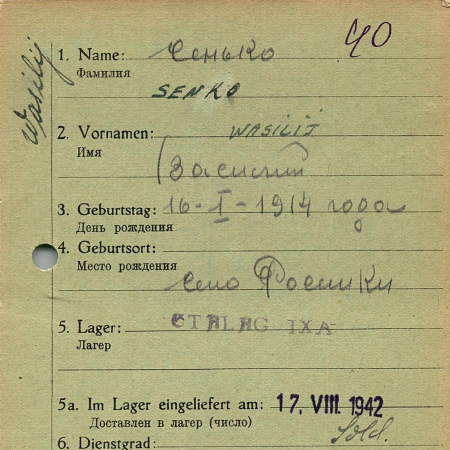 Wasilij
40
1. Name: Сенько
Фамилия
SENKO
2. Vornamen: WASILIJ
Имя
Василий
3. Geburtstag: 16-I-1914 года
День рождения
4. Geburtsort:
Место рождения
село
5. Lager: STALAG IXA
Лагер
5a. Im Lager eingeliefert am: 17. VIII. 1942
Доставлен в лагер (число)
Sold.
6. Dienstgrad: